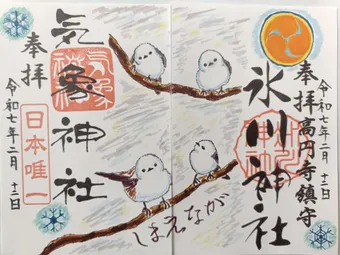 奉拝
高円寺鎮守
氷川神社
令和七年二月十二日
しまえなが
奉拝
気象神社
気象神社
日本唯一
令和七年二月十二日